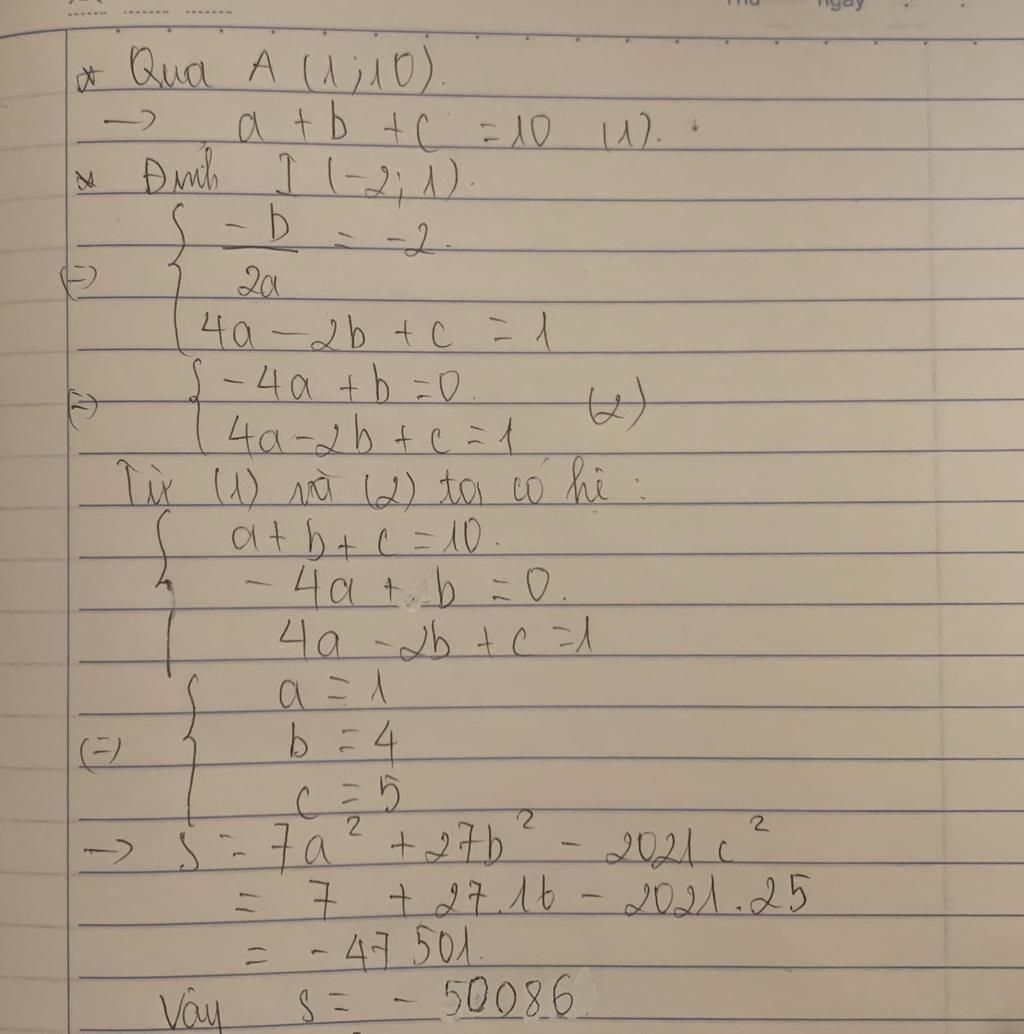 Thứ ngày
* Qua A (1;10).
→ a + b + c = 10 (1).
* Đỉnh I (-2; 1).
-b/2a = -2.
(=)
4a - 2b + c = 1
-4a + b = 0.
(=) (2)
4a - 2b + c = 1
Từ (1) và (2) ta có hệ :
a + b + c = 10.
-4a + b = 0.
4a - 2b + c = 1
a = 1
(=) b = 4
c = 5
→ S = 7a² + 27b² - 2021c²
= 7 + 27.16 - 2021.25
= -47 501.
Vậy S = -50086